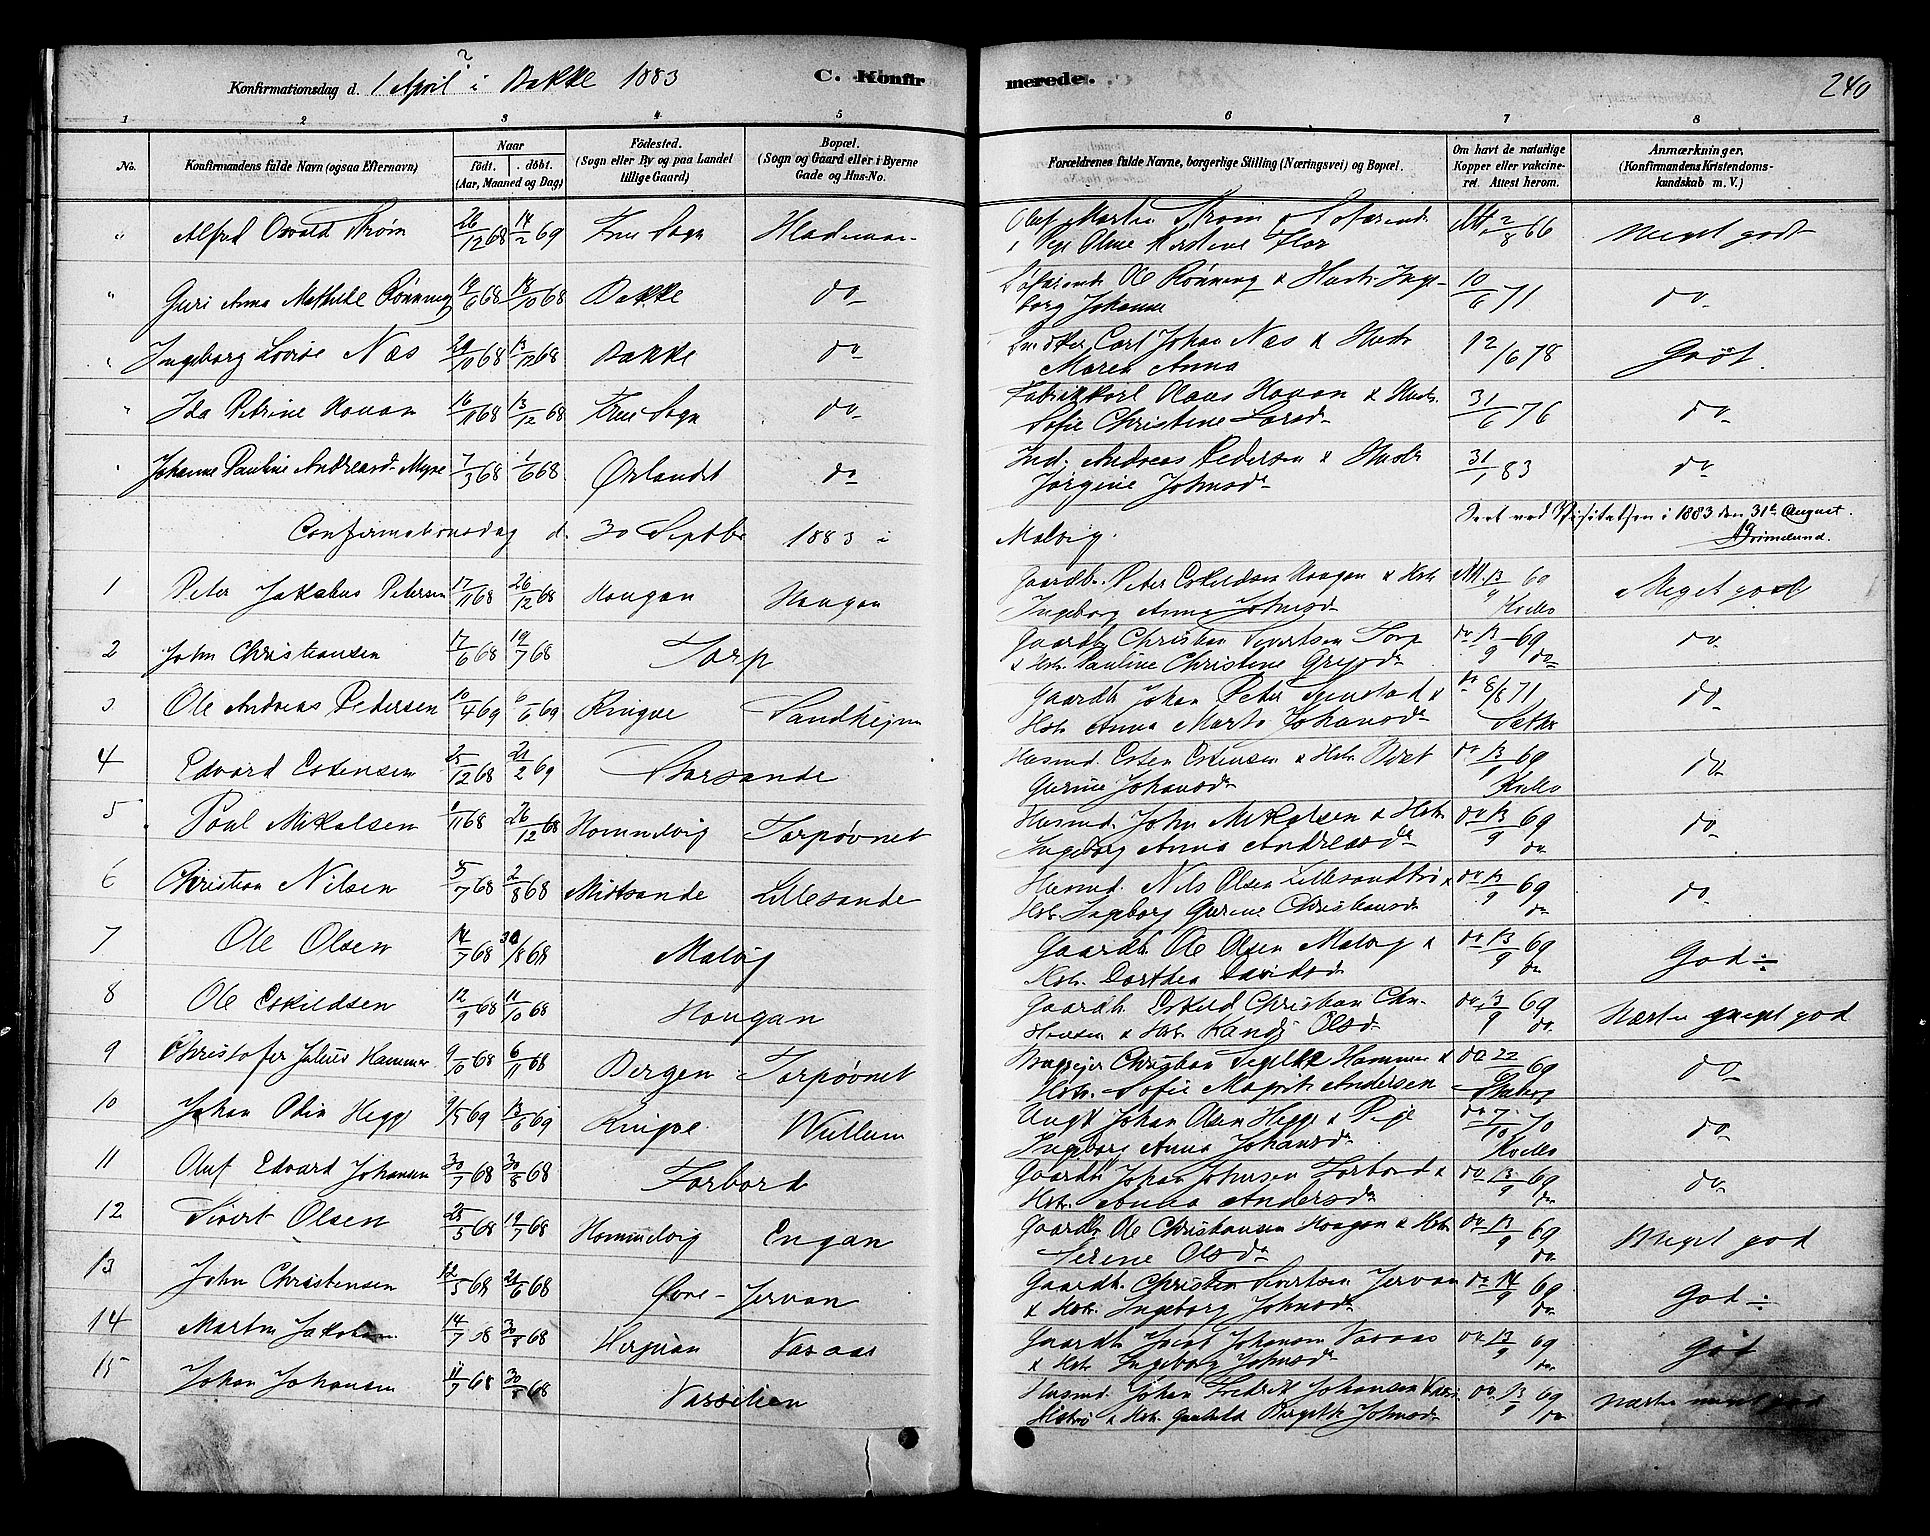 240
Konfirmationsdag d. 1 April i Bakke 1883
C. Konfirmerede.
1 2 3 4 5 6 7 8
No. Konfirmandens fulde Navn (ogsaa Efternavn) Naar Födt. döbt. (Aar, Maaned og Dag) Födested. (Sogn eller By og paa Landet tillige Gaard) Bopæl. (Sogn og Gaard eller i Byerne Gade og Hus-No. Forældrenes fulde Navne, borgerlige Stilling (Næringsvei) og Bopæl. Om havt de naturlige Kopper eller vakcineret. Attest herom. Anmærkninger, (Konfirmandens Kristendomskundskab m. V.)
" Alfred Osvald Strøm 26/12 68 14/2 69 Frue Sogn Olaf Martin Strøm Pige Oline Kirstine Flor 2/8 66 Meget godt
" Guri Anna Mathilde Rönning 18/10 68 Bakke do Ole Rönning & Hustr. Ingeborg Johanne 10/6 71 do
" Ingeborg Lovise Næs 68 68 Bakke do Carl Johan Næs & Hustr. Maren Anna 12/6 78 Godt.
" Ida Petrine Hovan 16/11 68 13/12 68 Frue Sogn do Hans Hovan & Hustr. Sofie Christine Larsd. 31/6 76 do
" Johanne Pauline Andreasd. Myse 7/3 68 1/6 68 Ørlandet do Ind. Andreas Pedersen & Hustr. Jörgine Johnsd. 31/1 83 do
Confirmationsdag d. 30 Septbr 1883 i Malvig.
Seet ved Visitatsen i 1883 den 31te August.
Grimelund.
1 Peter Jakobus Petersen 17/11 68 26/12 68 Hougan Hougan Gaardbr. Peter Eskildsen Hougan & Hstr. Ingeborg Anna Johnsd. Att. 13/9 69 Meget god
2 John Christiansen 17/6 68 19/7 68 Torp Gaardbr. Christian Sivertsen Torp & Hstr. Pauline Christine do 13/9 69 do do
3 Ole Andreas Pedersen 10/4 69 6/6 69 Ringve Gaardb. Johan Peter & Hstr. Anna Marta Johansd. do 8/8 71 do
4 Edvard Estensen 25/12 68 21/2 69 Storsande Husmd. Esten Estensen & Hstr. Beret Gurine Johansd. do 13/9 69 do
5 Paul Mikalsen 11 68 26/12 68 Hommelvig Torpøvnet Husmd. John Mikalsen & Hstr. Ingeborg Anna Andreasd. do 13/9 69 do do
6 Christian Nilsen 5/7 68 2/8 68 Midtsande Lillesande Husmd. Nils Olsen & Hstr. Ingeborg Gurine Christiansd. do 13/9 69 do do
7 Ole Olsen 14/7 68 30/8 68 Malvig Gaardb. Ole Olsen Malvig & Hstr. Dorthea Davidsd. do 13/9 69 do God ÷
8 Ole Eskildsen 12/9 68 11/10 68 Hougan Gaardb. Eskild Christian & Hstr. Randi Olsd. do 13/9 69 do Næsten meget god
9 Christofer Julius Hammer 9/10 68 6/11 68 Bergen Torpøvnet Christian Hammer & Hstr. Sofie Magrit Andersen do 22 69 do
10 Johan Odin Hegg 9/5 69 13/6 69 Ringve Wullum Ungk. Johan Olsen Hegg & Pige Ingeborg Anna Johansd. do 7/10 70 do
11 Oluf Edvard Johansen 30/7 68 30/8 68 Forbord Gaardb. Johan Johnsen Forbord & Hstr. Anna Andersd. do 13/9 69 do do
12 Sivert Olsen 25/5 68 19/7 68 Hommelvig Engan Gaardb. Ole Christiansen Hougan & Hstr. Serine Olsd. do 13/9 69 do Meget god
13 John Christensen 12/5 68 21/6 68 Øvre-Jervan Gaardb. Christen Sivertsen Jervan & Hstr. Ingeborg Johnsd. do 14/9 69 do God ÷
14 Martin Jakobsen 14/7 68 30/8 68 Vaaas Gaardb. Jacob Johansen & Hstr. Ingeborg Johnsd. do 13/9 69 do God
15 Johan Johansen 11/7 68 30/8 68 Husmd. Johan Fredrik Johansen & Hstr. Birgitte Johnsd. do 13/9 69 do Næsten meget god